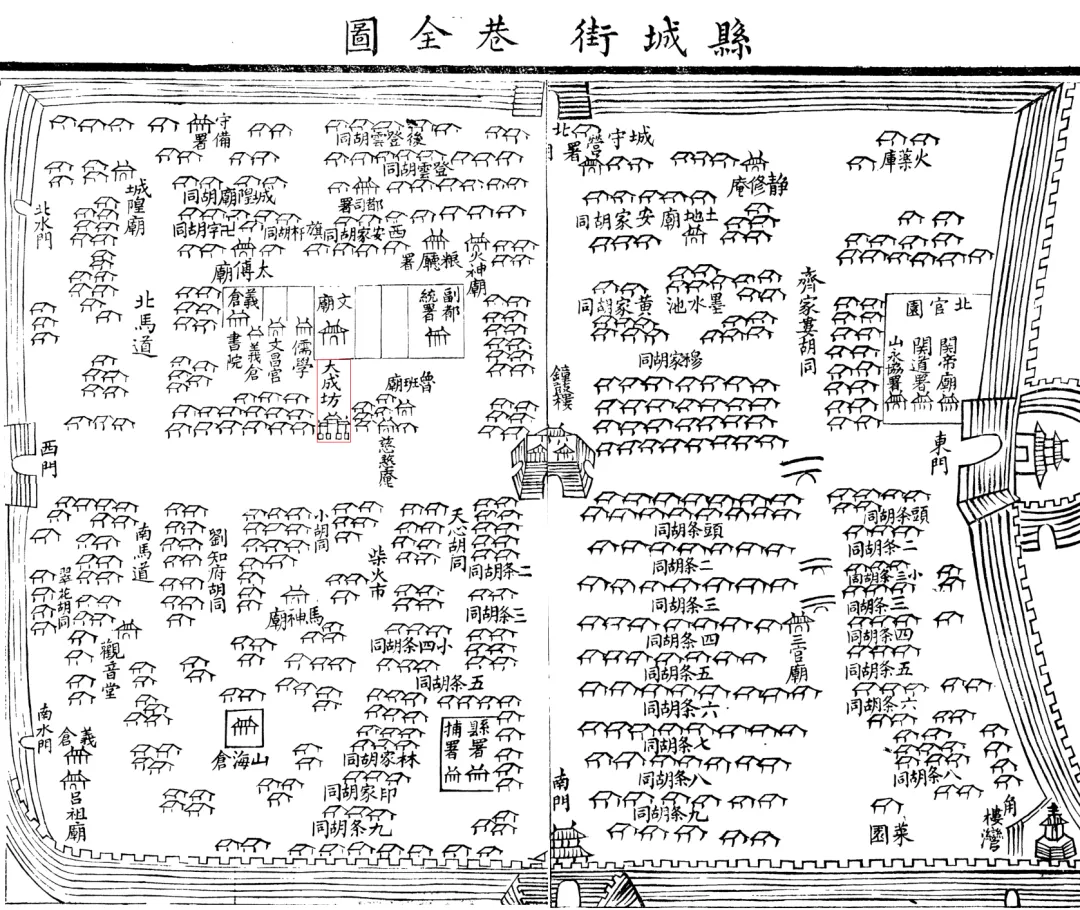 縣城街巷全圖
北門
城守營署
靜修庵
火藥庫
安家胡同
土地廟
黃家胡同
墨水池
穆家胡同
齊家婁胡同
北官園
關帝廟
關道署
山永協署
鐘鼓樓
東門
頭条胡同
二条胡同
三条胡同
四条胡同
五条胡同
六条胡同
七条胡同
八条胡同
九条胡同
三官廟
頭条胡同
二条胡同
小三条胡同
三条胡同
四条胡同
五条胡同
六条胡同
八条胡同
菜園
角樓灣
南門
守備署
後登雲胡同
登雲胡同
城隍廟
城隍廟胡同
都司署
北水門
卍字胡同
旗杆胡同
西安家胡同
粮廳署
火神廟
太傅廟
北馬道
副都統署
文廟
義倉
書院
義倉
文昌宮
儒學
大成坊
魯班廟
慈愍庵
西門
南馬道
劉知府胡同
小胡同
柴火市
天心胡同
二条胡同
三条胡同
小四条胡同
五条胡同
翠花胡同
馬神廟
觀音堂
南水門
義倉
呂祖廟
山海倉
林家胡同
印家胡同
九条胡同
縣署
捕署